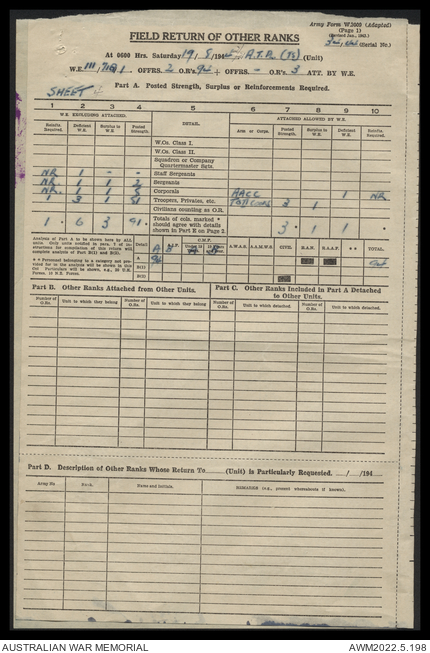 Army Form W.3009 (Adapted)
(Page 1)
(Serial No.)
FIELD RETURN OF OTHER RANKS
At 0600 Hrs. Saturday 19/ 194 (Unit)
W.E. 111/ OFFRS. 2 O.R's. 94 + OFFRS. – O.R's. 3 ATT. BY W.E.
Part A. Posted Strength, Surplus or Reinforcements Required.
SHEET I
1 2 3 4 5 6 7 8 9 10
W.E. EXCLUDING ATTACHED. ATTACHED ALLOWED BY W.E.
Reinfts. Required. Deficient W.E. Surplus to W.E. Posted Strength. DETAIL. Arm or Corps. Posted Strength. Surplus to W.E. Deficient W.E. Reinfts. Required.
W.Os. Class I.
W.Os. Class II.
Squadron or Company Quartermaster Sgts.
NR 1 - - Staff Sergeants
NR 1 1 Sergeants
NR. 1 1 Corporals AACC 1 NR
1 3 1 Troopers, Privates, etc. 3 1
Civilians counting as O.R.
1 . 6 3 91 . Totals of cols. marked * should agree with details shown in Part E on Page 2. 3 . 1 1 .
Analysis of Part A to be shown here by ALL units. Only units notified in para. 2 of instructions for compilation of this return will complete analysis of Part B(I) and B(II).
* * Personnel belonging to a category not provided for in the analysis will be shown in this Col. Particulars will be shown, e.g., 20 U.K. Forces. 10 N.Z. Forces.
Detail A.I.F. C.M.F. A.W.A.S. A.A.M.W.S. CIVIL R.A.N. R.A.A.F. * * TOTAL.
A 94
B(I)
B(II)
Part B. Other Ranks Attached from Other Units.
Part C. Other Ranks Included in Part A Detached to Other Units.
Number of O.Rs. Unit to which they belong Number of O.Rs. Unit to which they belong Number of O.Rs. Unit to which detached. Number of O.Rs. Unit to which detached.
Part D. Description of Other Ranks Whose Return To (Unit) is Particularly Requested. / /194
Army No Rank. Name and Initials. REMARKS (e.g., present whereabouts if known).
AUSTRALIAN WAR MEMORIAL AWM2022.5.198